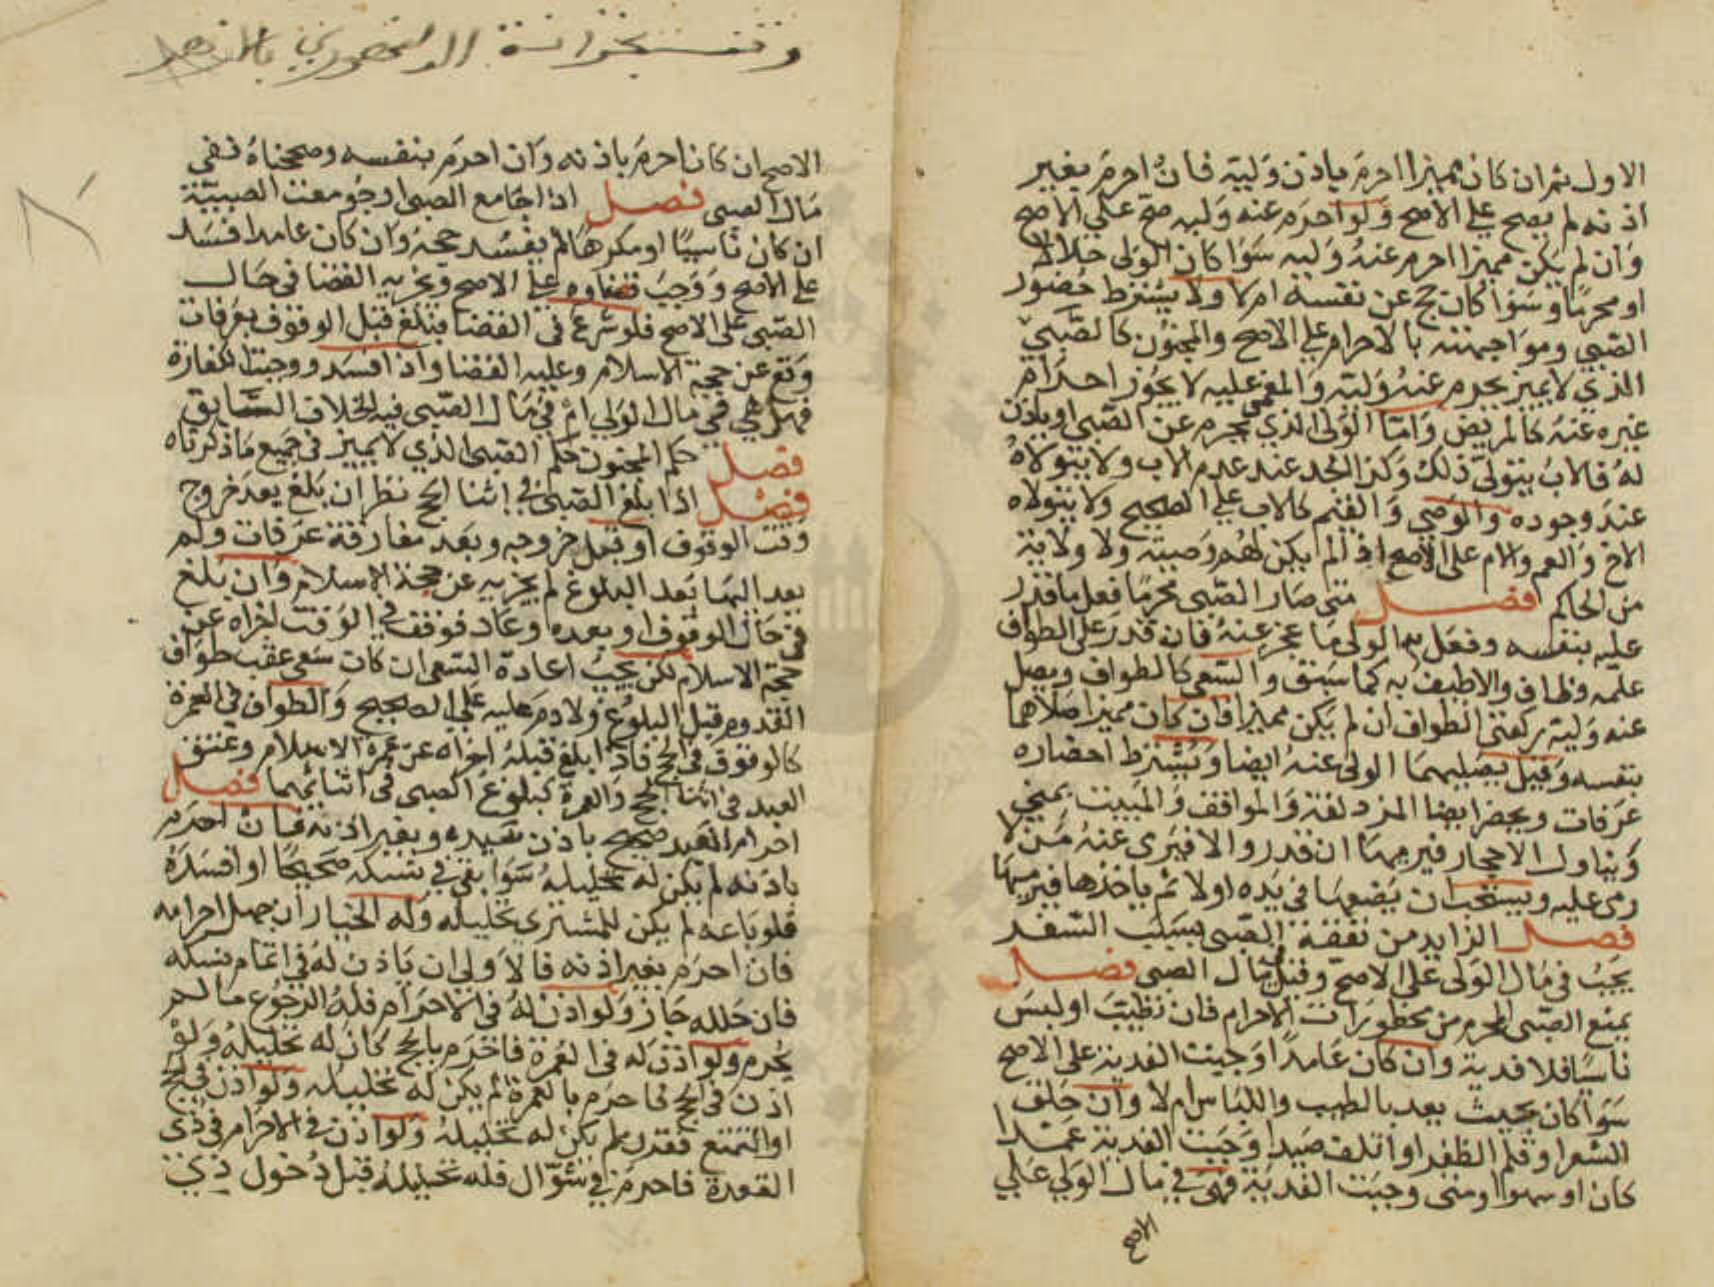 الاول ثم ان كان مميزا احرم باذن وليه فان احرم بغير
اذنه لم يصح على الاصح ولو احرم عنه وليه صح على الاصح
وان لم يكن مميزا احرم عنه وليه سوا كان الولي حلالا
او محرما وسوا كان حج عن نفسه ام لا ولا يشترط حضور
الصبي ومواجهته بالاحرام على الاصح والمجنون كالصبي
الذي لا يميز يحرم عنه وليه والمغمى عليه لا يجوز احرام
غيره عنه كالمريض واما الولي الذي يحرم عن الصبي او ياذن
له فالاب يتولى ذلك وكذا الجد عند عدم الاب ولا يتولاه
عند وجوده والوصي والقيم كالاب على الصحيح ولا يتولاه
الاخ والعم والام على الاصح اذا لم يكن لهم وصية ولا ولاية
من الحاكم فصل متى صار الصبي محرما فعل ما قدر
عليه بنفسه وفعل به الولي ما عجز عنه فان قدر على الطواف
علمه وطاف والا طيف به كما سبق والسعي كالطواف ويصلي
عنه وليه ركعتي الطواف ان لم يكن مميزا فان كان مميزا صلاهما
بنفسه وقيل يصليهما الولي عنه ايضا ويشترط احضاره
عرفات ويحضر ايضا المزدلفة والمواقف والمبيت بمنى
ويناول الاحجار فيرميها ان قدر والا فيرمي عنه من لا
رمي عليه ويستحب ان يضعها في يده اولا ثم ياخذها فيرميها
فصل الزايد من نفقة الصبي بسبب السفر
يجب في مال الولي على الاصح وقيل في مال الصبي فصل
يمنع الصبي المحرم من محظورات الاحرام فان تطيب او لبس
ناسيا فلا فدية وان كان عامدا وجبت الفدية على الاصح
سوا كان بحيث يعد بالطيب واللباس ام لا وان حلق
الشعر او قلم الظفر او اتلف صيدا وجبت الفدية عمدا
كان او سهوا ومتى وجبت الفدية فهي في مال الولي على
الاصح
الاصح ان كان احرم باذنه وان احرم بنفسه وصححناه ففي
مال الصبي فصل اذا جامع الصبي او جومعت الصبية
ان كان ناسيا او مكرها لم يفسد حجه وان كان عامدا فسد
على الاصح ووجب قضاوه على الاصح ويجزيه القضا في حال
الصبي على الاصح فلو شرع في القضا فبلغ قبل الوقوف بعرفات
وقع عن حجة الاسلام وعليه القضا واذا افسد ووجبت الكفارة
فهل هي في مال الولي ام في مال الصبي فيه الخلاف السابق
فصل حكم المجنون حكم الصبي الذي لا يميز في جميع ما ذكرناه
فصل اذا بلغ الصبي في اثنا الحج نظر ان بلغ بعد خروج
وقت الوقوف او قبل خروجه وبعد مفارقة عرفات ولم
يعد اليها بعد البلوغ لم يجزيه عن حجة الاسلام وان بلغ
في حال الوقوف او بعده وعاد فوقف في الوقت اجزاه عن
حجة الاسلام لكن يجب اعادة السعي ان كان سعى عقب طواف
القدوم قبل البلوغ ولا دم عليه على الصحيح والطواف في العمرة
كالوقوف في الحج فاذا بلغ قبله اجزاه عن عمرة الاسلام وعتق
العبد في اثنا الحج والعمرة كبلوغ الصبي في اثنائهما فصل
احرام العبد صحيح باذن سيده وبغير اذنه فان احرم
باذنه لم يكن له تحليله سوا بقي في نسكه صحيحا او افسده
فلو باعه لم يكن للمشتري تحليله وله الخيار ان جهل احرامه
فان احرم بغير اذنه فالاولى ان ياذن له في اتمام نسكه
فان حلله جاز ولو اذن له في الاحرام فله الرجوع ما لم
يحرم ولو اذن له في العمرة فاحرم بالحج كان له تحليله ولو
اذن في الحج فاحرم بالعمرة لم يكن له تحليله ولو اذن في الحج
او التمتع فقرن لم يكن له تحليله ولو اذن في الاحرام في ذي
القعدة فاحرم في شوال فله تحليله قبل دخول ذي